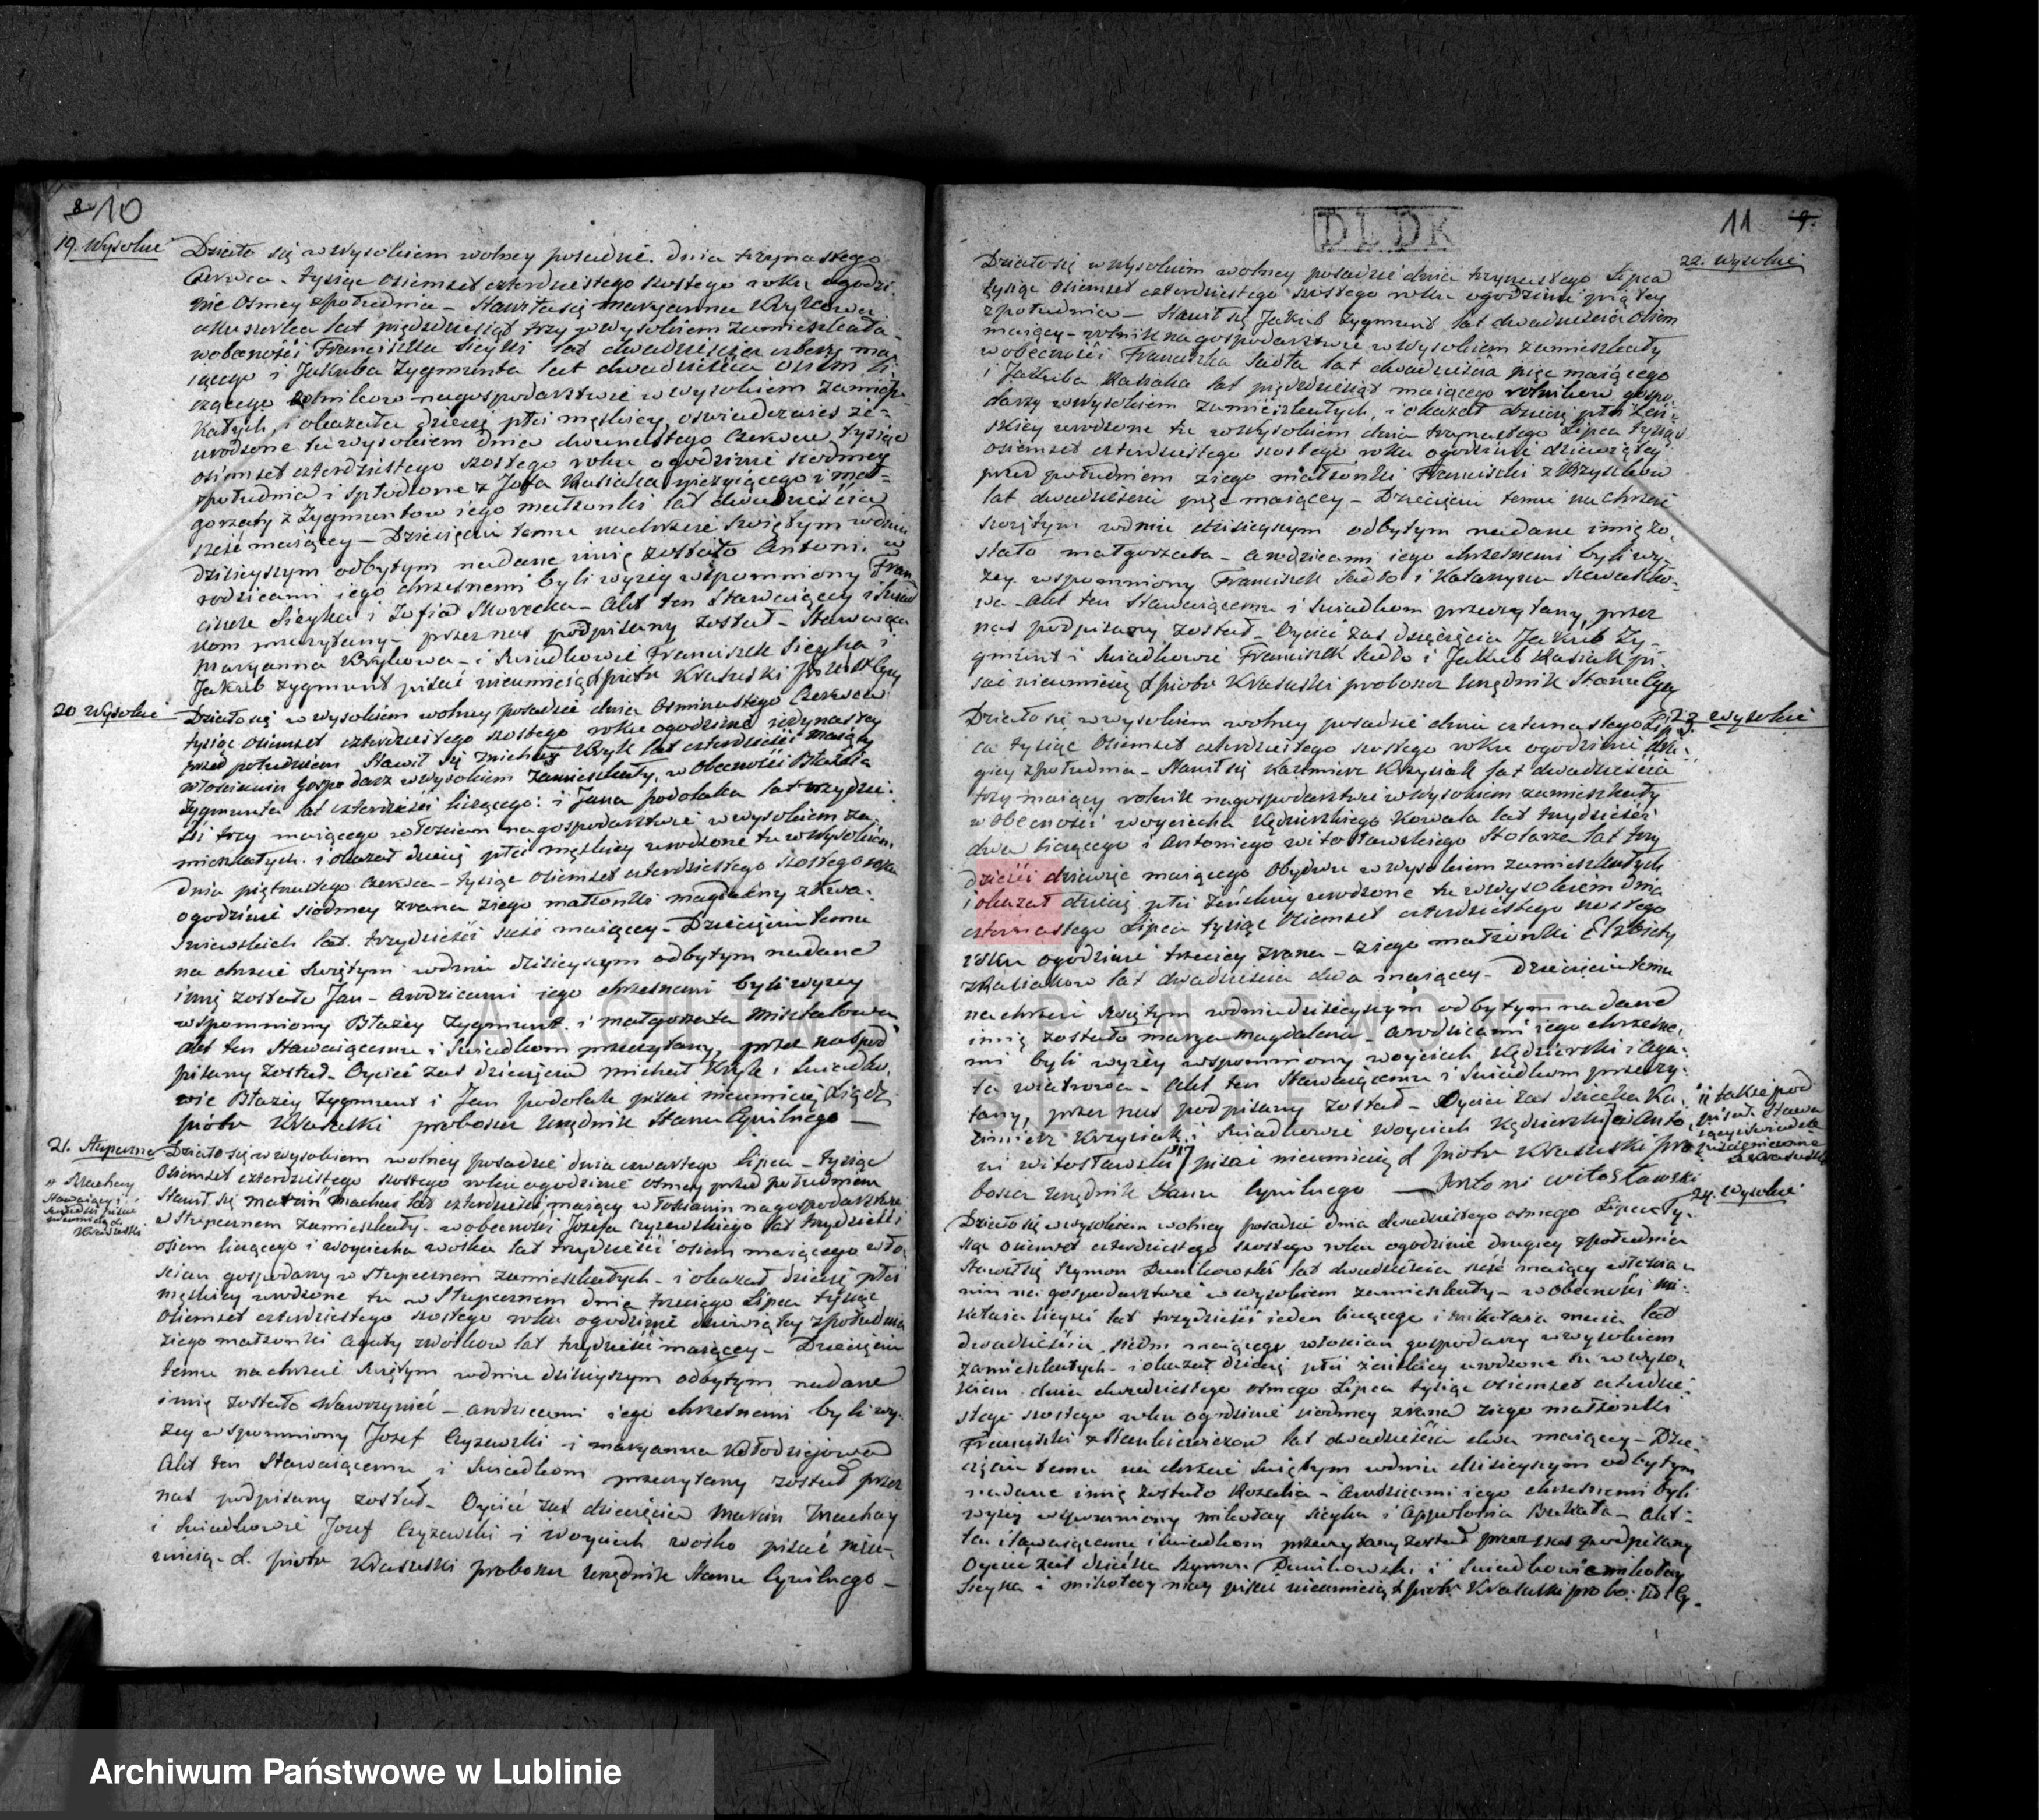 8. 10
19. Wysokie
Działo się w Wysokiem wolney posadzie. dnia trzynastego
Czerwca. tysiąc osiemset czterdziestego szostego roku ogodzi-
nie osmey zpołudnia – Stawiła się Maryanna Krykowa
akuszerka lat pięćdziesiąt trzy w wysokiem zamieszkała
wobecności Franciszka Sicyki lat dwadzieścia cztery ma
iącego i Jakuba Zygmunta lat dwadzieścia osiem li
czącego rolników na gospodarstwie w wysokiem zamiesz-
kałych, i okazała dziecię płci męskiey, oświadczaiąc że
urodzone tu w wysokiem dnia dwunastego Czerwca tysiąc
osiemset czterdziestego szostego roku ogodzinie siodmey
zpołudnia i spłodzone z Jozefa Kasiaka nieżyiącego i Mał-
gorzaty z Zygmuntow iego małżonki lat dwadzieścia
sześć maiącey – Dziecięciu temu na chrzcie świętym wdniu
dzisieyszym odbytym nadane imię zostało Antoni. a
rodzicami iego chrzesnemi byli wyżey wspomniony Fran
ciszek Sicyka i Zofia Skorzcka – Akt ten Stawaiącey i świad
kom przeczytany – przez nas podpisany został – Stawaiąca
Maryanna Krykowa – i świadkowie Franciszek Sicyka i
Jakub Zygmunt pisać nieumieią X Piotr Krasuski Pro U St Cyw
20 Wysokie
Działo się w wysokiem wolney posadzie dnia Osiminastego Czerwca
tysiąc osiemset czterdziestego szostego roku ogodzinie iedynastey
przed południem Stawił się Michał Kryk lat czterdzieści maiący
włościanin Gospodarz w wysokiem zamieszkały, w obecności Błażeia
Zygmunta lat czterdzieści liczącego: i Jana Podolaka lat trzydzie-
ści trzy maiącego włościan na gospodarstwie w wysokiem za-
mieszkałych. i okazał dziecię płci męskiey urodzone tu w wysokiem
dnia piętnastego Czerwca – tysiąc osiemset czterdziestego szostego roku
ogodzinie siodmey zrana ziego małżonki Magdaleny z Kwa-
śniewskich lat. trzydzieści sześć maiącey – Dziecięciu temu
na chrzcie świętym wdniu dzisieyszym odbytym nadane
imię zostało Jan – a rodzicami iego chrzesnemi byli wyżey
wspomniony Błażey Zygmunt. i Małgorzata Misztalowa
Akt ten Stawaiącemu i świadkom przeczytany, przez nas pod
pisany został – Oyciec zaś dziecięcia Michał Kryk i świadko-
wie Błażey Zygmunt i Jan Podolak pisać nieumieią Xiądz
Piotr Krasuski proboszcz Urzędnik Stanu Cywilnego –
21. Stupeczno
Działo się w wysokiem wolney posadzie dnia czwartego Lipca – tysiąc
osiemset czterdziestego szostego roku ogodzinie osmey przed południem
Stawił się Marcin Machay lat czterdzieści maiący włościanin na gospodarstwie
w Stupecznem zamieszkały. w obecności Jozefa Czyzewskiego lat trzydzieści
osiem liczącego i Woyciecha Wośka lat trzydzieści osiem maiącego wło
ścian gospodarzy w Stupecznem zamieszkałych – i okazał dziecię płci
męskiey urodzone tu w Stupecznem dnia trzeciego Lipca tysiąc
osiemset czterdziestego szostego roku ogodzinie dziewiątey zpołudnia
ziego małżonki Agaty zWośkow lat trzydzieści maiącey – Dziecięciu
temu na chrzcie świętym wdniu dzisieyszym odbytym nadane
imię zostało Wawrzyniec – a rodzicami iego chrzesnemi byli wy-
żey wspomniony Jozef Czyzewski i Maryanna Kołodzieiowa
Akt ten Stawaiącemu i świadkom przeczytany został przez
nas podpisany został – Oyciec zaś dziecięcia Marcin Machay
i świadkowie Jozef Czyzewski i Woyciech Wośko pisać nieu-
mieią – X. Piotr Krasuski proboszcz Urzędnik Stanu Cywilnego –
Machay
Stawaiący i
świadki pisać
nieumieią X.
Krasuski
DLDK
11 9.
22. Wysokie
Działo się w Wysokiem wolney posadzie dnia trzynastego Lipca
tysiąc osiemset czterdziestego szostego roku ogodzinie piątey
zpołudnia – Stawił się Jakub Zygmunt lat dwadzieścia osiem
maiący – rolnik na gospodarstwie w wysokiem zamieszkały
w obecności Franciszka Sadła lat dwadzieścia pięć maiącego
i Jakuba Kasiaka lat pięćdziesiąt maiącego rolników gospo-
darzy w wysokiem zamieszkałych, i okazał dziecię płci żeń-
skiey urodzone tu w wysokiem dnia trzynastego Lipca tysiąc
osiemset czterdziestego szostego roku ogodzinie dziewiątey
przed południem ziego małżonki Franciszki z Krzyszkow
lat dwadzieścia pięć maiącey – Dziecięciu temu na chrzcie
świętym wdniu dzisieyszym odbytym nadane imię zo-
stało Małgorzata – a rodzicami iego chrzesnemi byli wy-
żey wspomniony Franciszek Sadło i Katarzyna
Akt ten Stawaiącemu i świadkom przeczytany, przez
nas podpisany został – Oyciec zaś dziecięcia Jakub Zy-
gmunt i świadkowie Franciszek Sadło i Jakub Kasiak pi-
sać nieumieią X Piotr Krasuski proboszcz Urzędnik Stanu Cyw
23 Wysokie
Działo się w wysokiem wolney posadzie dnia czternastego Lip-
ca tysiąc osiemset czterdziestego szostego roku ogodzinie dru-
giey zpołudnia – Stawił się Kazimierz Krzysiak lat dwadzieścia
trzy maiący rolnik na gospodarstwie w wysokiem zamieszkały
w obecności Woyciecha Kędzierskiego Kowala lat trzydzieści
dwa liczącego i Antoniego Witosławskiego Stolarza lat trzy
dzieści dziewięć maiącego Obydwu w wysokiem zamieszkałych
i okazał dziecię płci żeńskiey urodzone tu w wysokiem dnia
czternastego Lipca tysiąc osiemset czterdziestego szostego
roku ogodzinie trzeciey zrana – ziego małżonki Elżbiety
lat dwadzieścia dwa maiącey – Dziecięciu temu
na chrzcie świętym wdniu dzisieyszym odbytym nadane
imię zostało Marya Magdalena – a rodzicami iego chrzesne-
mi byli wyżey wspomniony Woyciech Kędzierski i Aga-
ta Wiatrowa – Akt ten Stawaiącemu i świadkom przeczy-
tany, przez nas podpisany został – Oyciec zaś dziecka Ka-
zimierz Krzysiak i świadkowie Woyciech Kędzierski i Anto-
ni Witosławski pisać nieumieią X Piotr Krasuski pro
boszcz Urzędnik Stanu Cywilnego – Antoni Witosławski
24. Wysokie
Działo się w wysokiem wolney posadzie dnia dwudziestego osmego Lipca ty-
siąc osiemset czterdziestego szostego roku ogodzinie drugiey zpołudnia
Stawił się Szymon Dunikowski lat dwadzieścia sześć maiący włościa-
nin na gospodarstwie w wysokiem zamieszkały – w obecności Mi-
kołaia Sicyki lat trzydzieści ieden liczącego i Mikołaia lat
dwadzieścia siedm maiącego włościan gospodarzy w wysokiem
zamieszkałych – i okazał dziecię płci żeńskiey urodzone tu w wyso-
kiem dnia dwudziestego osmego Lipca tysiąc osiemset czterdzie-
stego szostego roku ogodzinie siodmey zrana ziego małżonki
Franciszki z Stankiewiczow lat dwadzieścia dwa maiącey – Dzie-
cięciu temu na chrzcie świętym wdniu dzisieyszym odbytym
nadane imię zostało Rozalia – a rodzicami iego chrzesnemi byli
wyżey wspomniony Mikołay Sicyka i Appolonia – Akt
ten stawaiącemu i świadkom przeczytany został przez nas podpisany
Oyciec zaś dziecka Szymon Dunikowski i świadkowie Mikołay
Sicyka i Mikołay pisać nieumieią X Piotr Krasuski prob. U S Cy.
Archiwum Państwowe w Lublinie